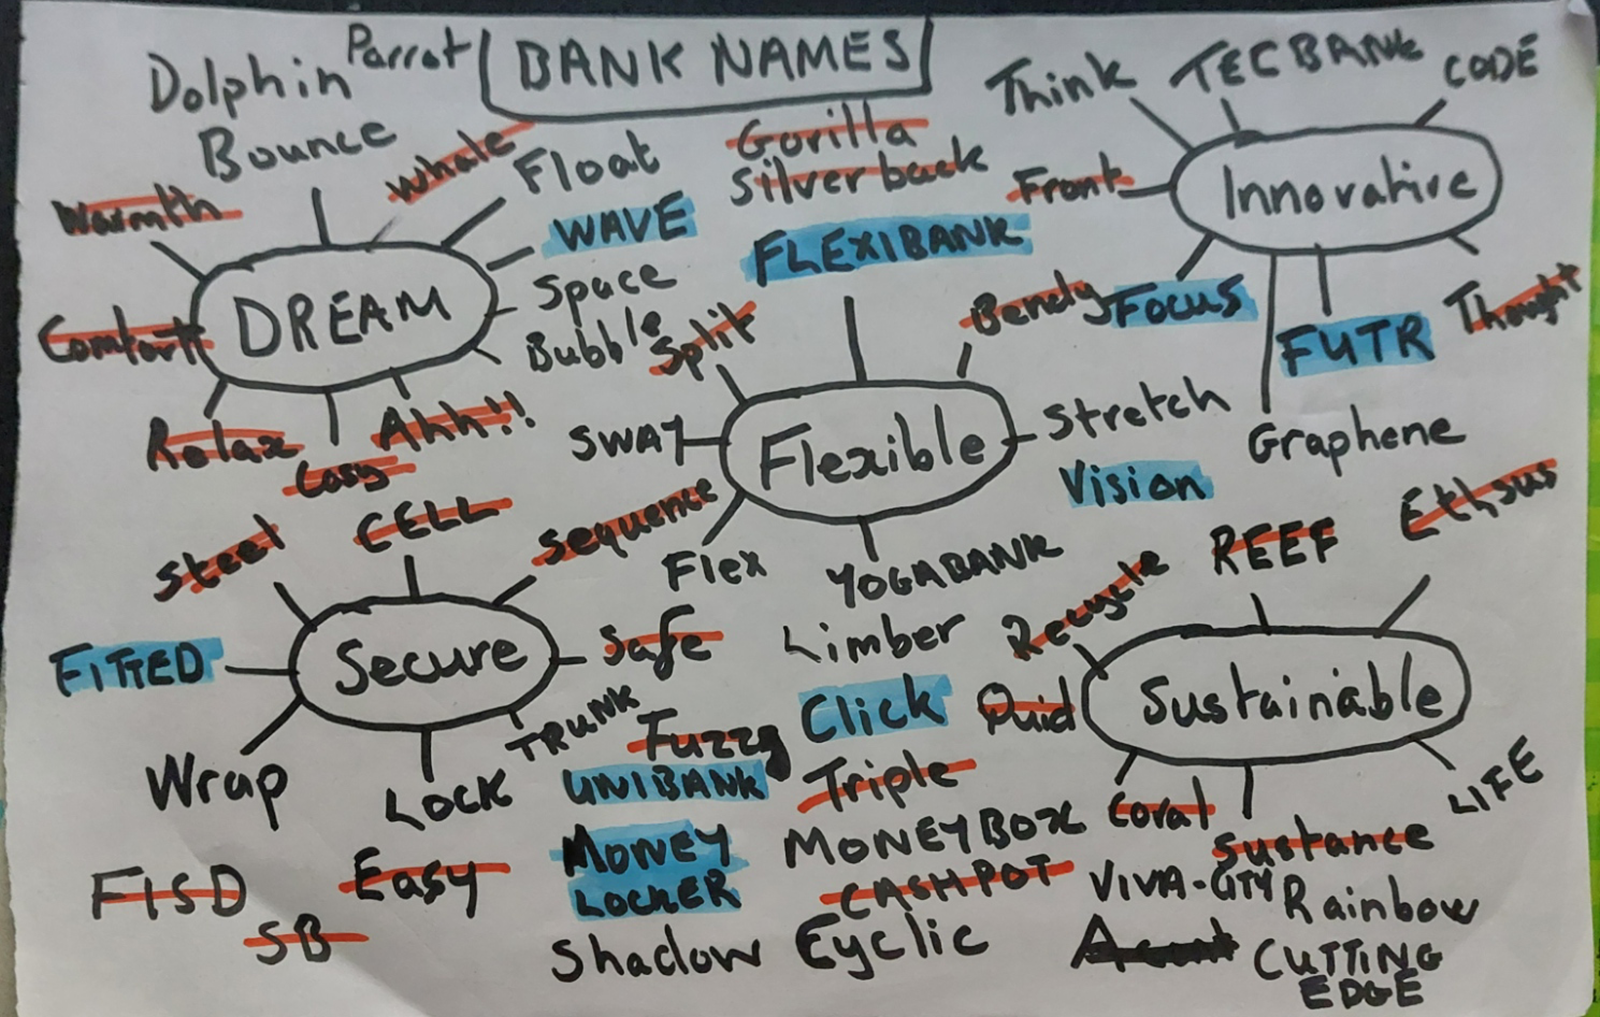 BANK NAMES
Dolphin
Parrot
Bounce
Whale
Float
Warmth
WAVE
Space
Bubble
DREAM
Comfort
Relax
Cosy
Ahh!!
Gorilla
Silverback
FLEXIBANK
Split
Bendy
SWAY
Flexible
Stretch
Vision
Flex
YOGABANK
Limber
Think
TECBANK
CODE
Front
Innovative
Focus
FUTR
Thought
Graphene
Steel
CELL
Sequence
FITTED
Secure
Safe
TRUNK
Wrap
LOCK
Recycle
REEF
Ethsus
Quid
Sustainable
Coral
Sustance
LIFE
Fuzzy
Click
UNIBANK
Triple
MONEY
LOCKER
MONEYBOX
CASHPOT
VIVA-CITY
Rainbow
FISD
SB
Easy
Shadow
Cyclic
CUTTING
EDGE